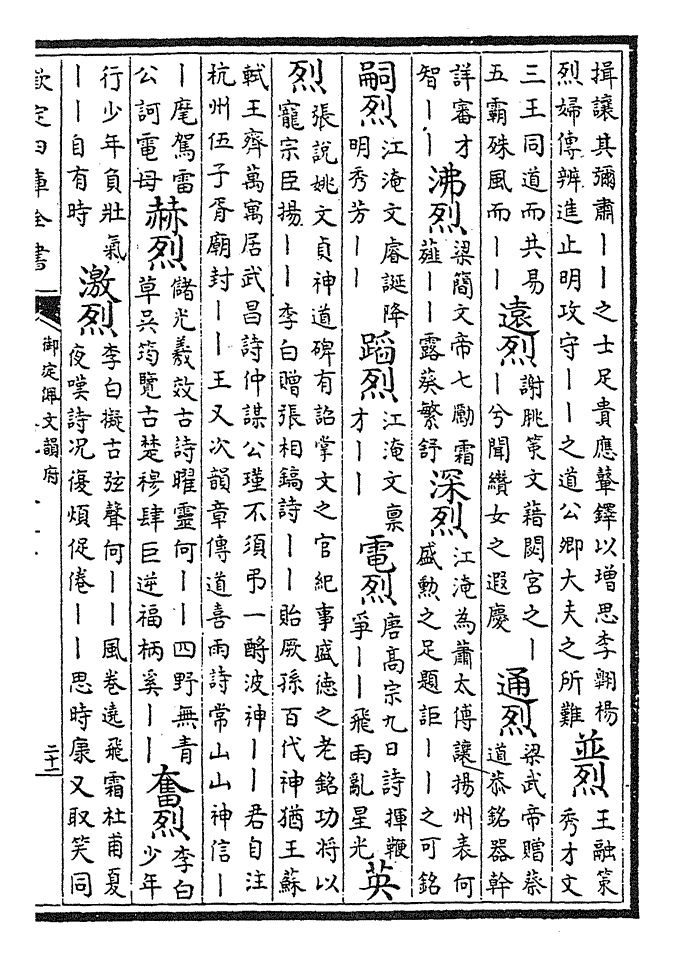 揖讓其彌肅丨丨之士足貴應鼙鐸以增思李翺楊
烈婦傳辨進止明攻守丨丨之道公卿大夫之所難
並烈
王融策
秀才文
三王同道而共易
五霸殊風而丨丨
遠烈
謝朓策文藉閟宮之丨
丨兮聞纘女之遐慶
通烈
梁武帝贈蔡
道恭銘器幹
詳審才
智丨丨
沸烈
梁簡文帝七勵霜
薤丨丨露葵繁舒
深烈
江淹為蕭太傅讓揚州表何
盛勲之足題詎丨丨之可銘
嗣烈
江淹文睿誕降
明秀芳丨丨
蹈烈
江淹文禀
才丨丨
電烈
唐高宗九日詩揮鞭
爭丨丨飛雨亂星光
英
烈
張說姚文貞神道碑有詔掌文之官紀事盛徳之老銘功將以
寵宗臣揚丨丨李白贈張相鎬詩丨丨貽厥孫百代神猶王蘇
軾王齊萬寓居武昌詩仲謀公瑾不須弔一酹波神丨丨君自注
杭州伍子胥廟封丨丨王又次韻章傳道喜雨詩常山山神信丨
丨麾駕雷
公訶電母
赫烈
儲光羲效古詩曜靈何丨丨四野無青
草吳筠覽古楚穆肆巨逆福柄奚丨丨
奮烈
李白
少年
行少年負壯氣
丨丨自有時
激烈
李白擬古弦聲何丨丨風卷遶飛霜杜甫夏
夜嘆詩况復煩促倦丨丨思時康又取笑同
欽定四庫全書
御定佩文韻府
二十二